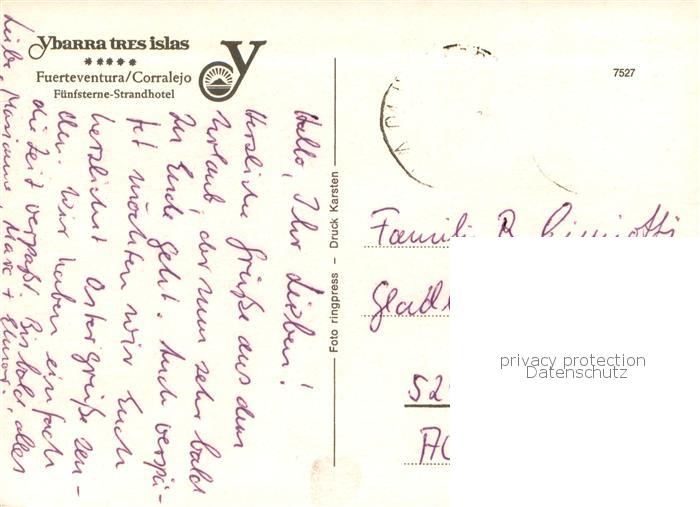 Ybarra tres islas
Fuerteventura/Corralejo
Fünfsterne-Strandhotel
Hallo, Ihr Lieben!
Herzliche Grüße aus dem
Urlaub, der nun sehr bald
zu Ende geht. Auch verspä-
tet möchten wir Euch
herzlichst Ostergrüße sen-
den. Wir haben einfach
die Zeit verpaßt. Bis bald, alles
Liebe, Marianne, Marc +
Foto ringpress – Druck Karsten
7527
Familie R.
privacy protection
Datenschutz